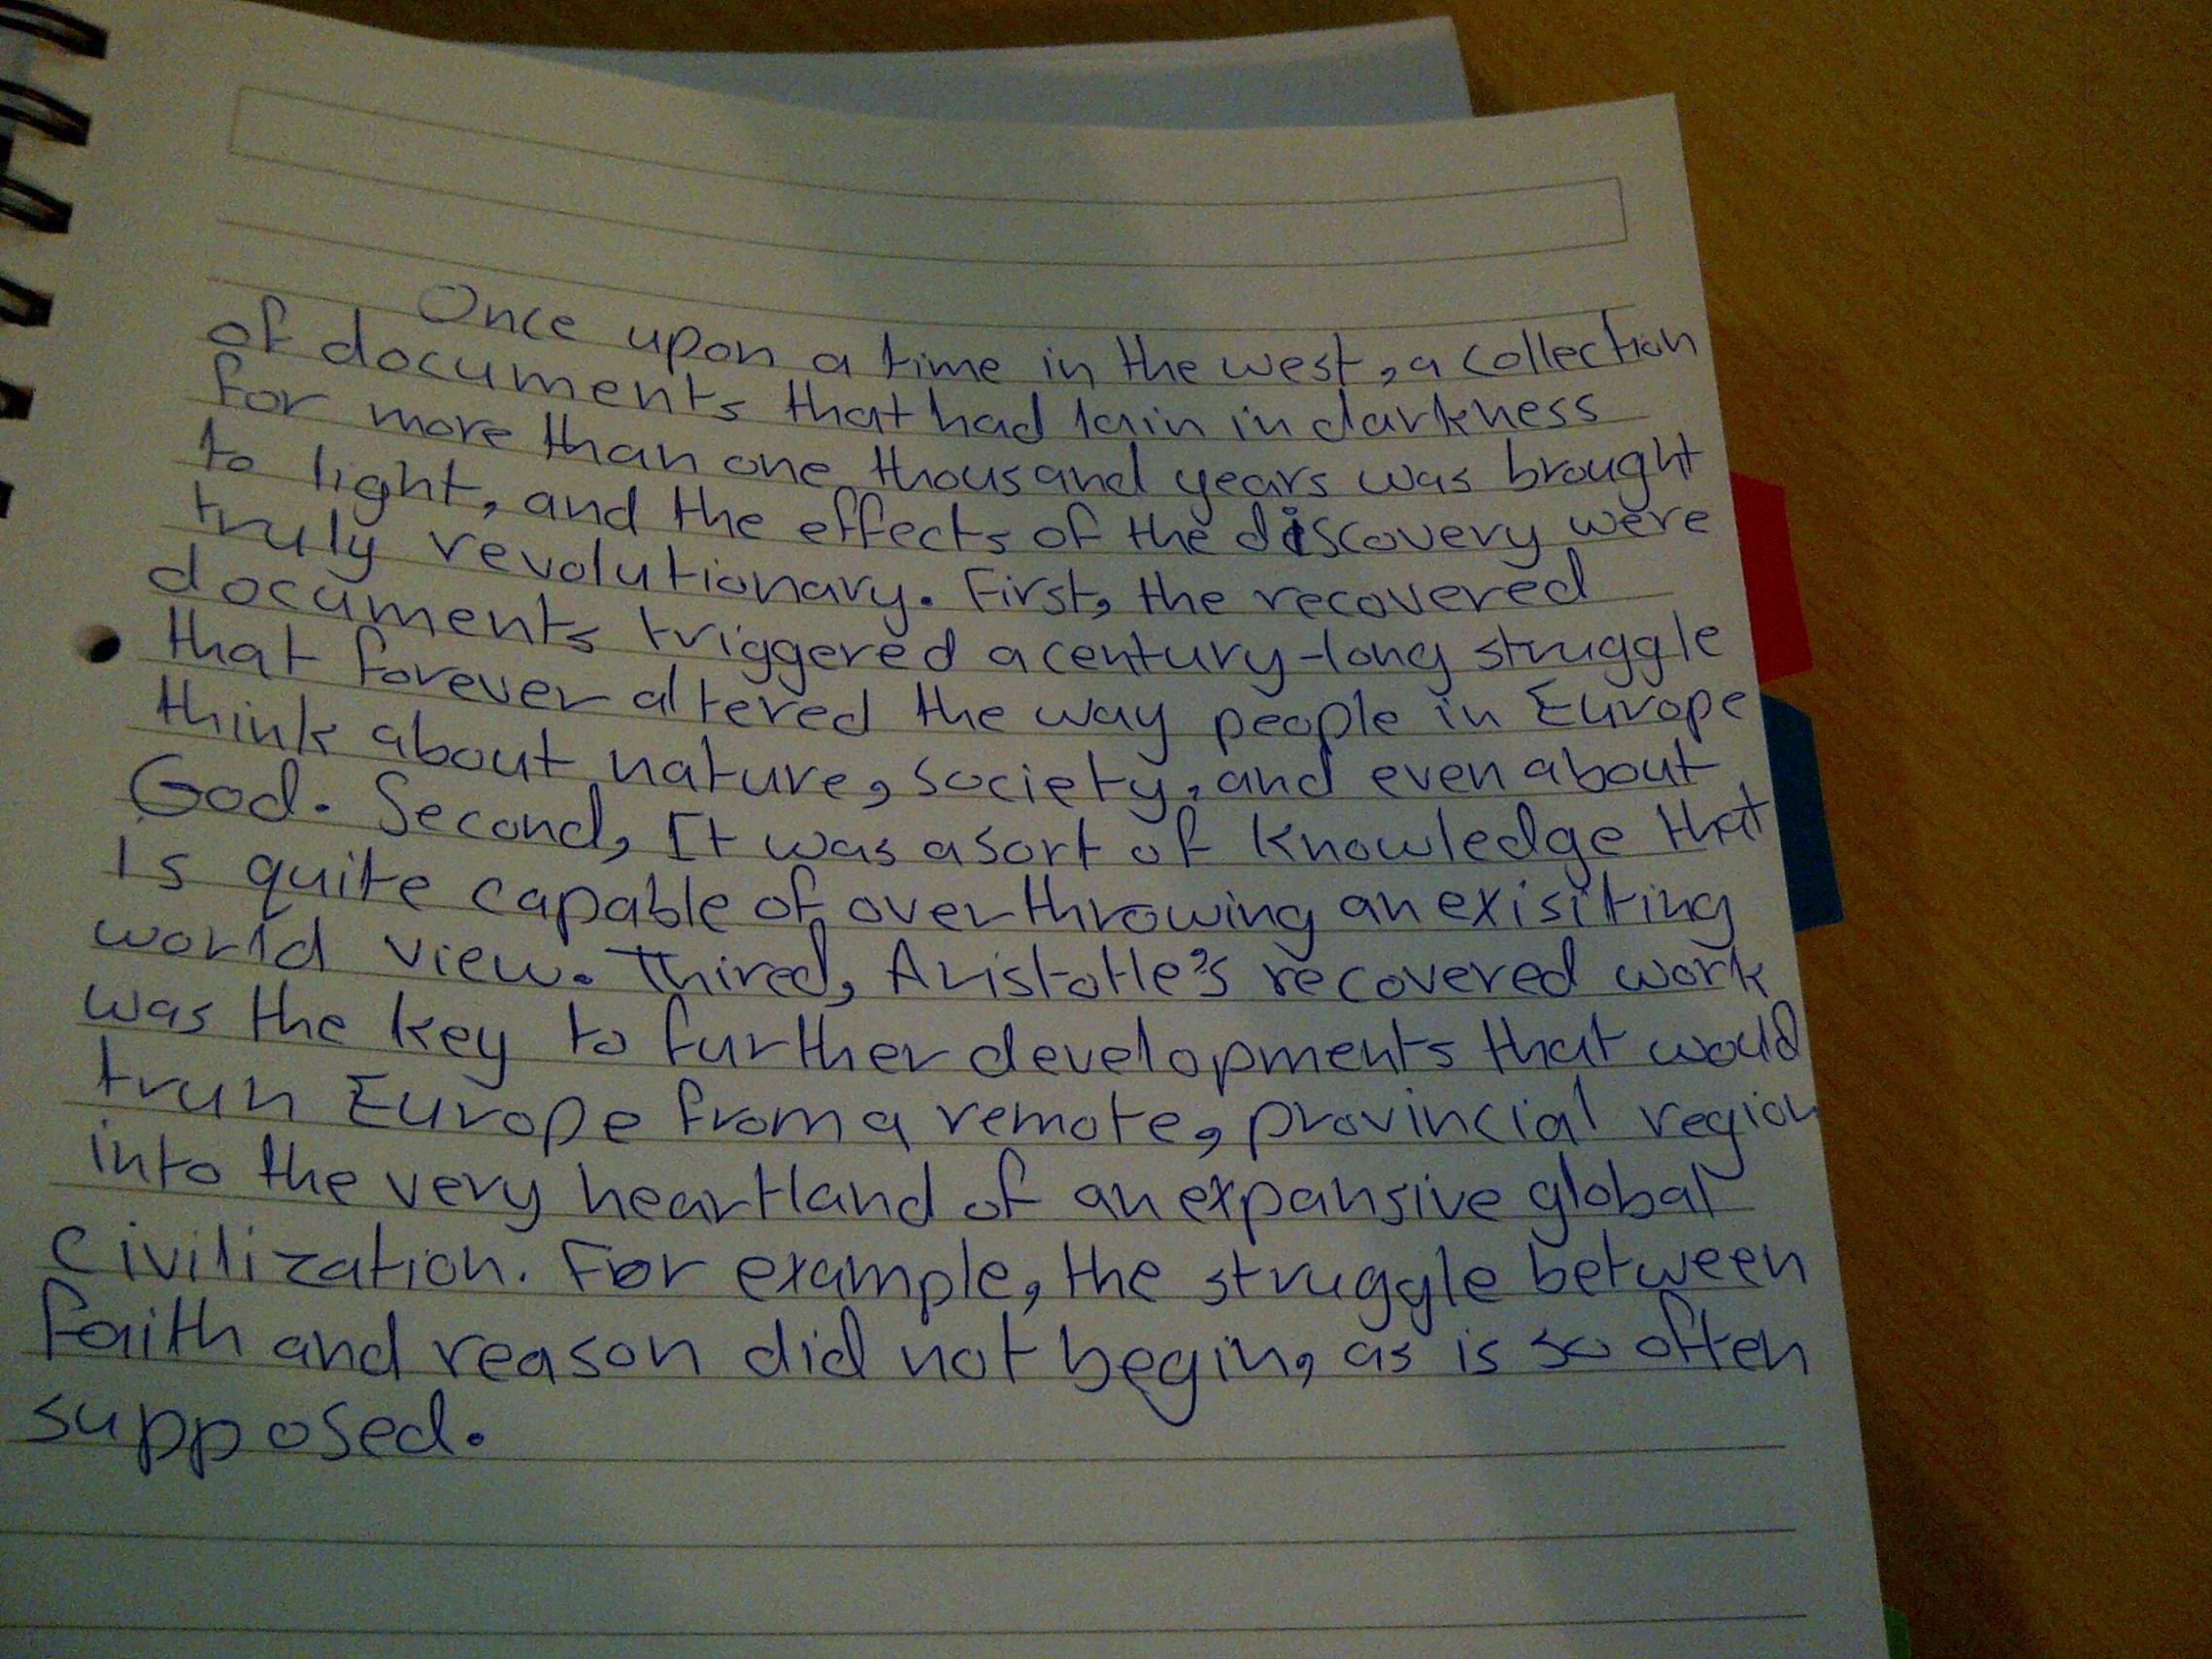 Once upon a time in the west, a collection
of documents that had lain in darkness
for more than one thousand years was brought
to light, and the effects of the discovery were
truly revolutionary. First, the recovered
documents triggered a century-long struggle
that forever altered the way people in Europe
think about nature, society, and even about
God. Second, It was a sort of knowledge that
Is quite capable of overthrowing an exisiting
world view. Thired, Aristotle's recovered work
was the key to further developments that would
trun Europe from a remote, provincial region
into the very heartland of an expansive global
civilization. For example, the struggle between
faith and reason did not begin, as is so often
supposed.